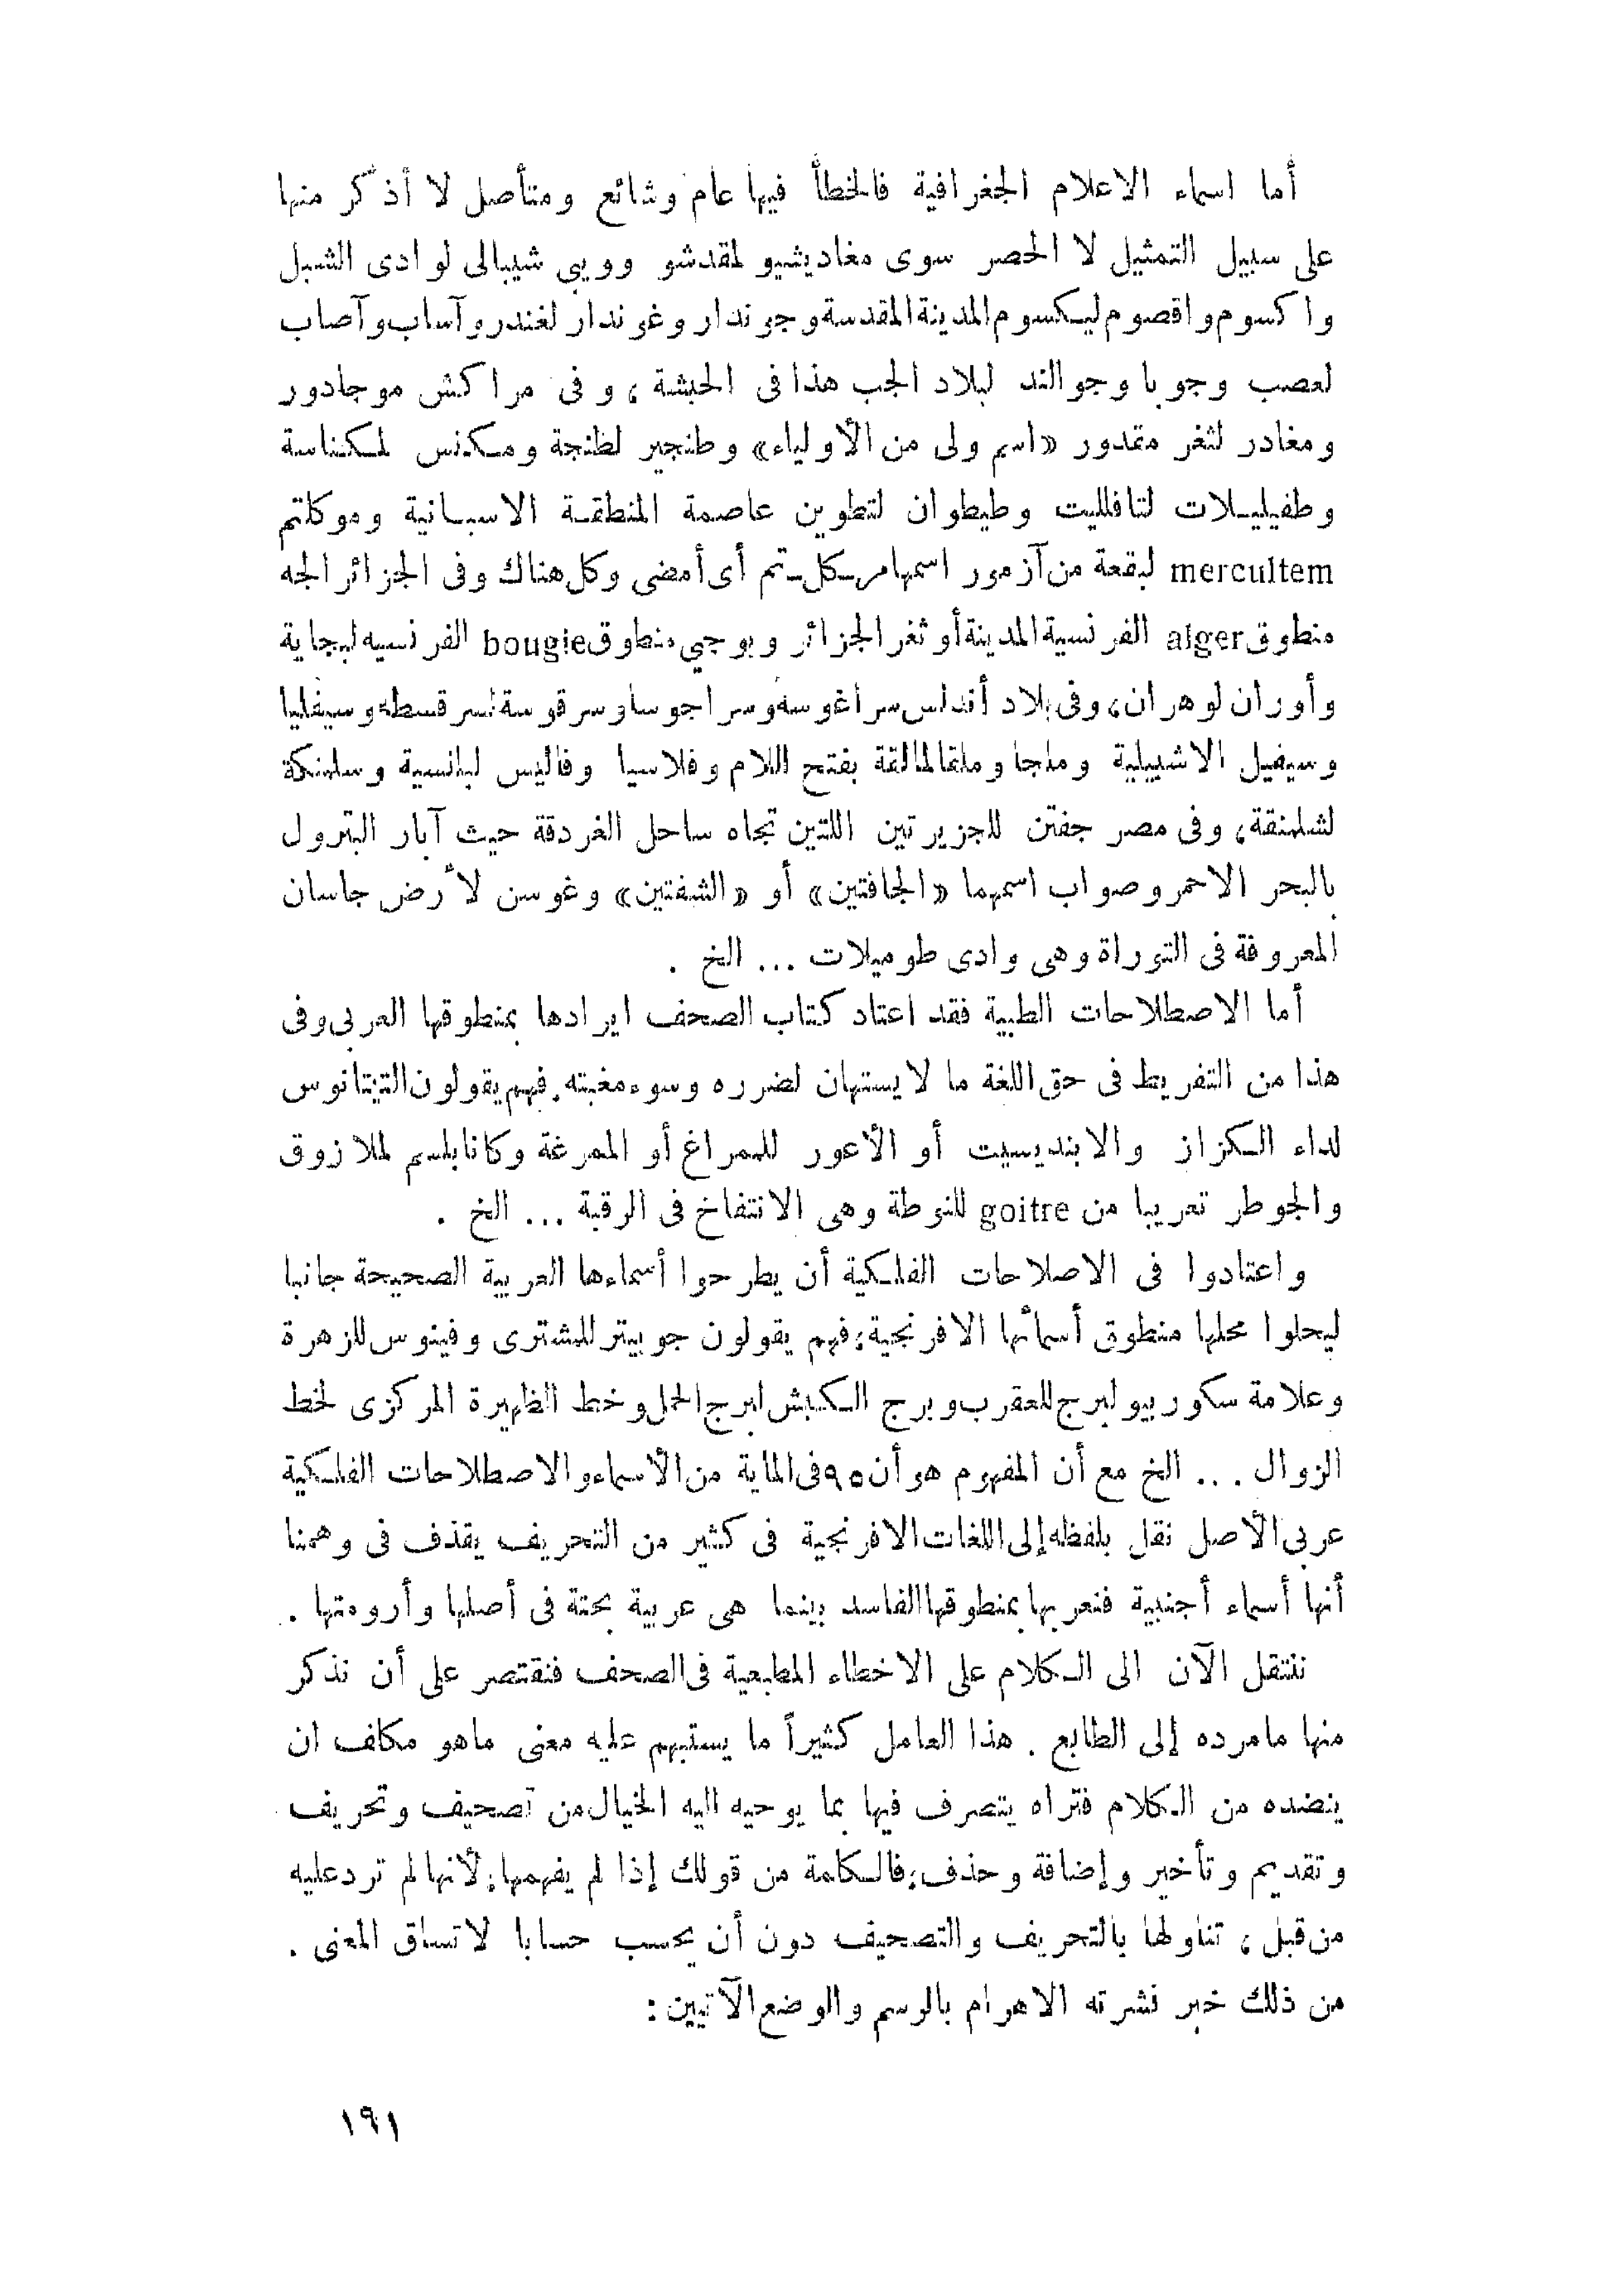 أما اسماء الاعلام الجغرافية فالخطأ فيها عام وشائع ومتأصل لا أذكر منها
على سبيل التمثيل لا الحصر سوى مغاديشيو لمقدشو وويبي شيبالى لوادى الشبل
واكسوم واقصوم ليكسوم المدينة المقدسة وجوندار وغوندار لغندر وآساب وآصاب
لعصب وجوبا وجوالند لبلاد الجب هذا فى الحبشة ، وفى مراكش موجادور
ومغادر لثغر مقدور «اسم ولى من الأولياء» وطنجير لطنجة ومكنس لمكناسة
وطفيليلات لتافلليت وطيطوان لتطوين عاصمة المنطقة الاسبانية وموكلتم
mercultem لبقعة من آزمور اسمها مر-كل-تم أى أمضى وكل هناك وفى الجزائر الجه
منطوق alger الفرنسية المدينة أو ثغر الجزائر وبوجي منطوق bougie الفرنسيه لبجاية
وأوران لوهران، وفى بلاد أندلس سراغوسه وسراجوسا وسرقوسة لسرقسطه وسيفليا
وسيفيل الاشبيلية وملجا وملقا لمالقة بفتح اللام وفلاسيا وفاليس لبلنسية وسلمنكة
لشلمنقة، وفى مصر جفتن للجزيرتين اللتين تجاه ساحل الغردقة حيث آبار البترول
بالبحر الاحمر وصواب اسمهما «الجافتين» أو «الشفتين» وغوسن لأرض جاسان
المعروفة فى التوراة وهى وادى طوميلات ... الخ .
أما الاصطلاحات الطبية فقد اعتاد كتاب الصحف ايرادها بمنطوقها العربى وفى
هذا من التفريط فى حق اللغة ما لا يستهان لضرره وسوء مغبته. فهم يقولون التيتانوس
لداء الكزاز والابنديسيت أو الأعور للممراغ أو الممرغة وكانابلسم لملازوق
والجوطر تعريبا من goitre للنوطة وهى الانتفاخ فى الرقبة ... الخ .
واعتادوا فى الاصلاحات الفلكية أن يطرحوا أسماءها العربية الصحيحة جانبا
ليحلوا محلها منطوق أسمائها الافرنجية؛ فهم يقولون جوبيتر للمشترى وفينوس للزهرة
وعلامة سكوربيو لبرج للعقرب وبرج الكبش لبرج الحمل وخط الظهيرة المركزى لخط
الزوال ... الخ مع أن المفهوم هو أن ٩٥ فى الماية من الأسماء والاصطلاحات الفلكية
عربى الأصل نقل بلفظه إلى اللغات الافرنجية فى كثير من التحريف يقذف فى وهمنا
أنها أسماء أجنبية فنعربها بمنطوقها الفاسد بينما هى عربية بحتة فى أصلها وأرومتها .
ننتقل الآن الى الكلام على الاخطاء المطبعية فى الصحف فنقتصر على أن نذكر
منها ما مرده إلى الطابع . هذا العامل كثيراً ما يستبهم عليه معنى ماهو مكلف ان
ينضده من الكلام فتراه يتصرف فيها بما يوحيه اليه الخيال من تصحيف وتحريف
وتقديم وتأخير وإضافة وحذف؛ فالكلمة من قولك إذا لم يفهمها؛ لأنها لم ترد عليه
من قبل ، تناولها بالتحريف والتصحيف دون أن يحسب حسابا لاتساق المعنى .
من ذلك خبر نشرته الاهرام بالرسم والوضع الآتيين :
١٩١